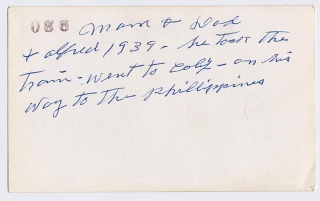 088 Mom + Dad
+ alfred 1939 - he took the
Train - went to Calif - on his
way to the Phillippines